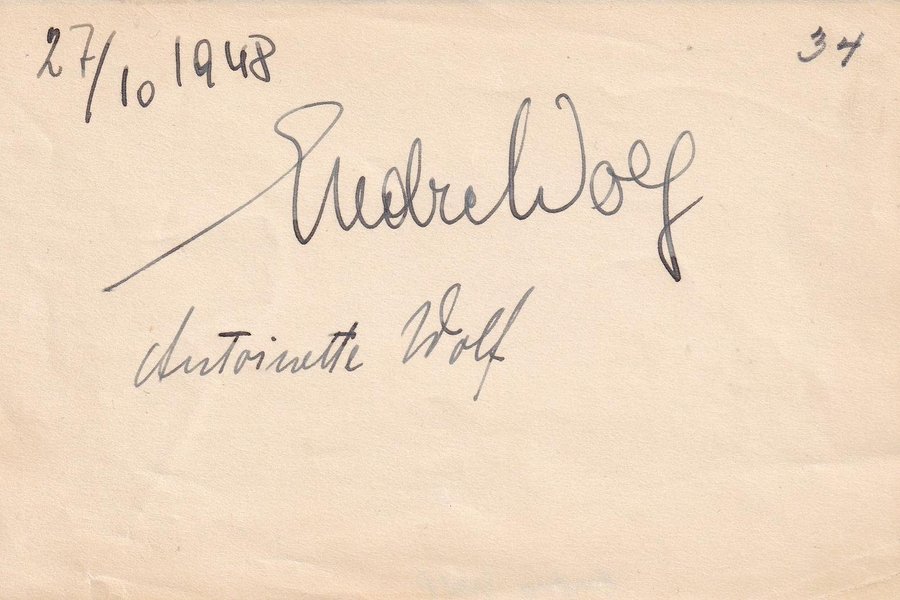 27/10 1948
34
Endre Wolf
Antoinette Wolf